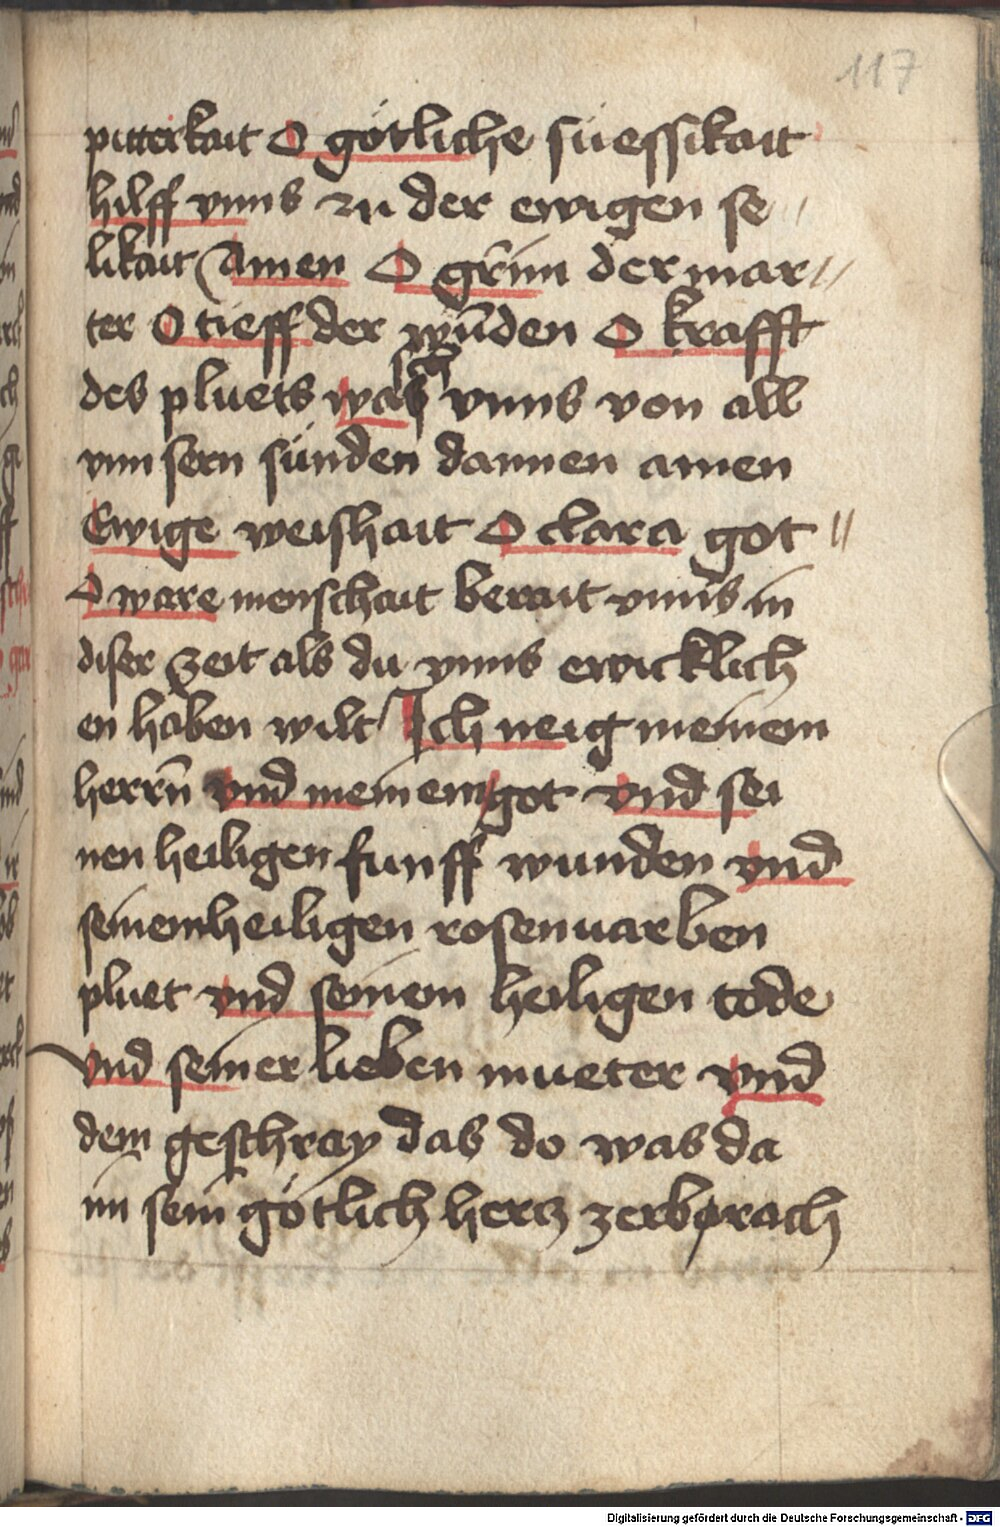 117
pitterkait O götliche süessikait
hilff vnns zu der ewigen se
likait Amen O grim̄ der mar
ter O tieff der wūden O krafft
des pluets wasch vnns von all
vnnsern sünden dannen amen
Ewige weishait O clara got
O ware menschait berait vnns in
diser zeit als du vnns ewicklich
en haben wilt Ich neig meinem
herrn̄ vnd meinem got vnd sei
nen heiligen funff wunden vnd
seinem heiligen rosenuarben
pluet vnd seinem heiligen tode
vnd seiner lieben mueter vnd
dem geschray das do was da
im sein götlich hercz zerbrach
Digitalisierung gefördert durch die Deutsche Forschungsgemeinschaft - DFG